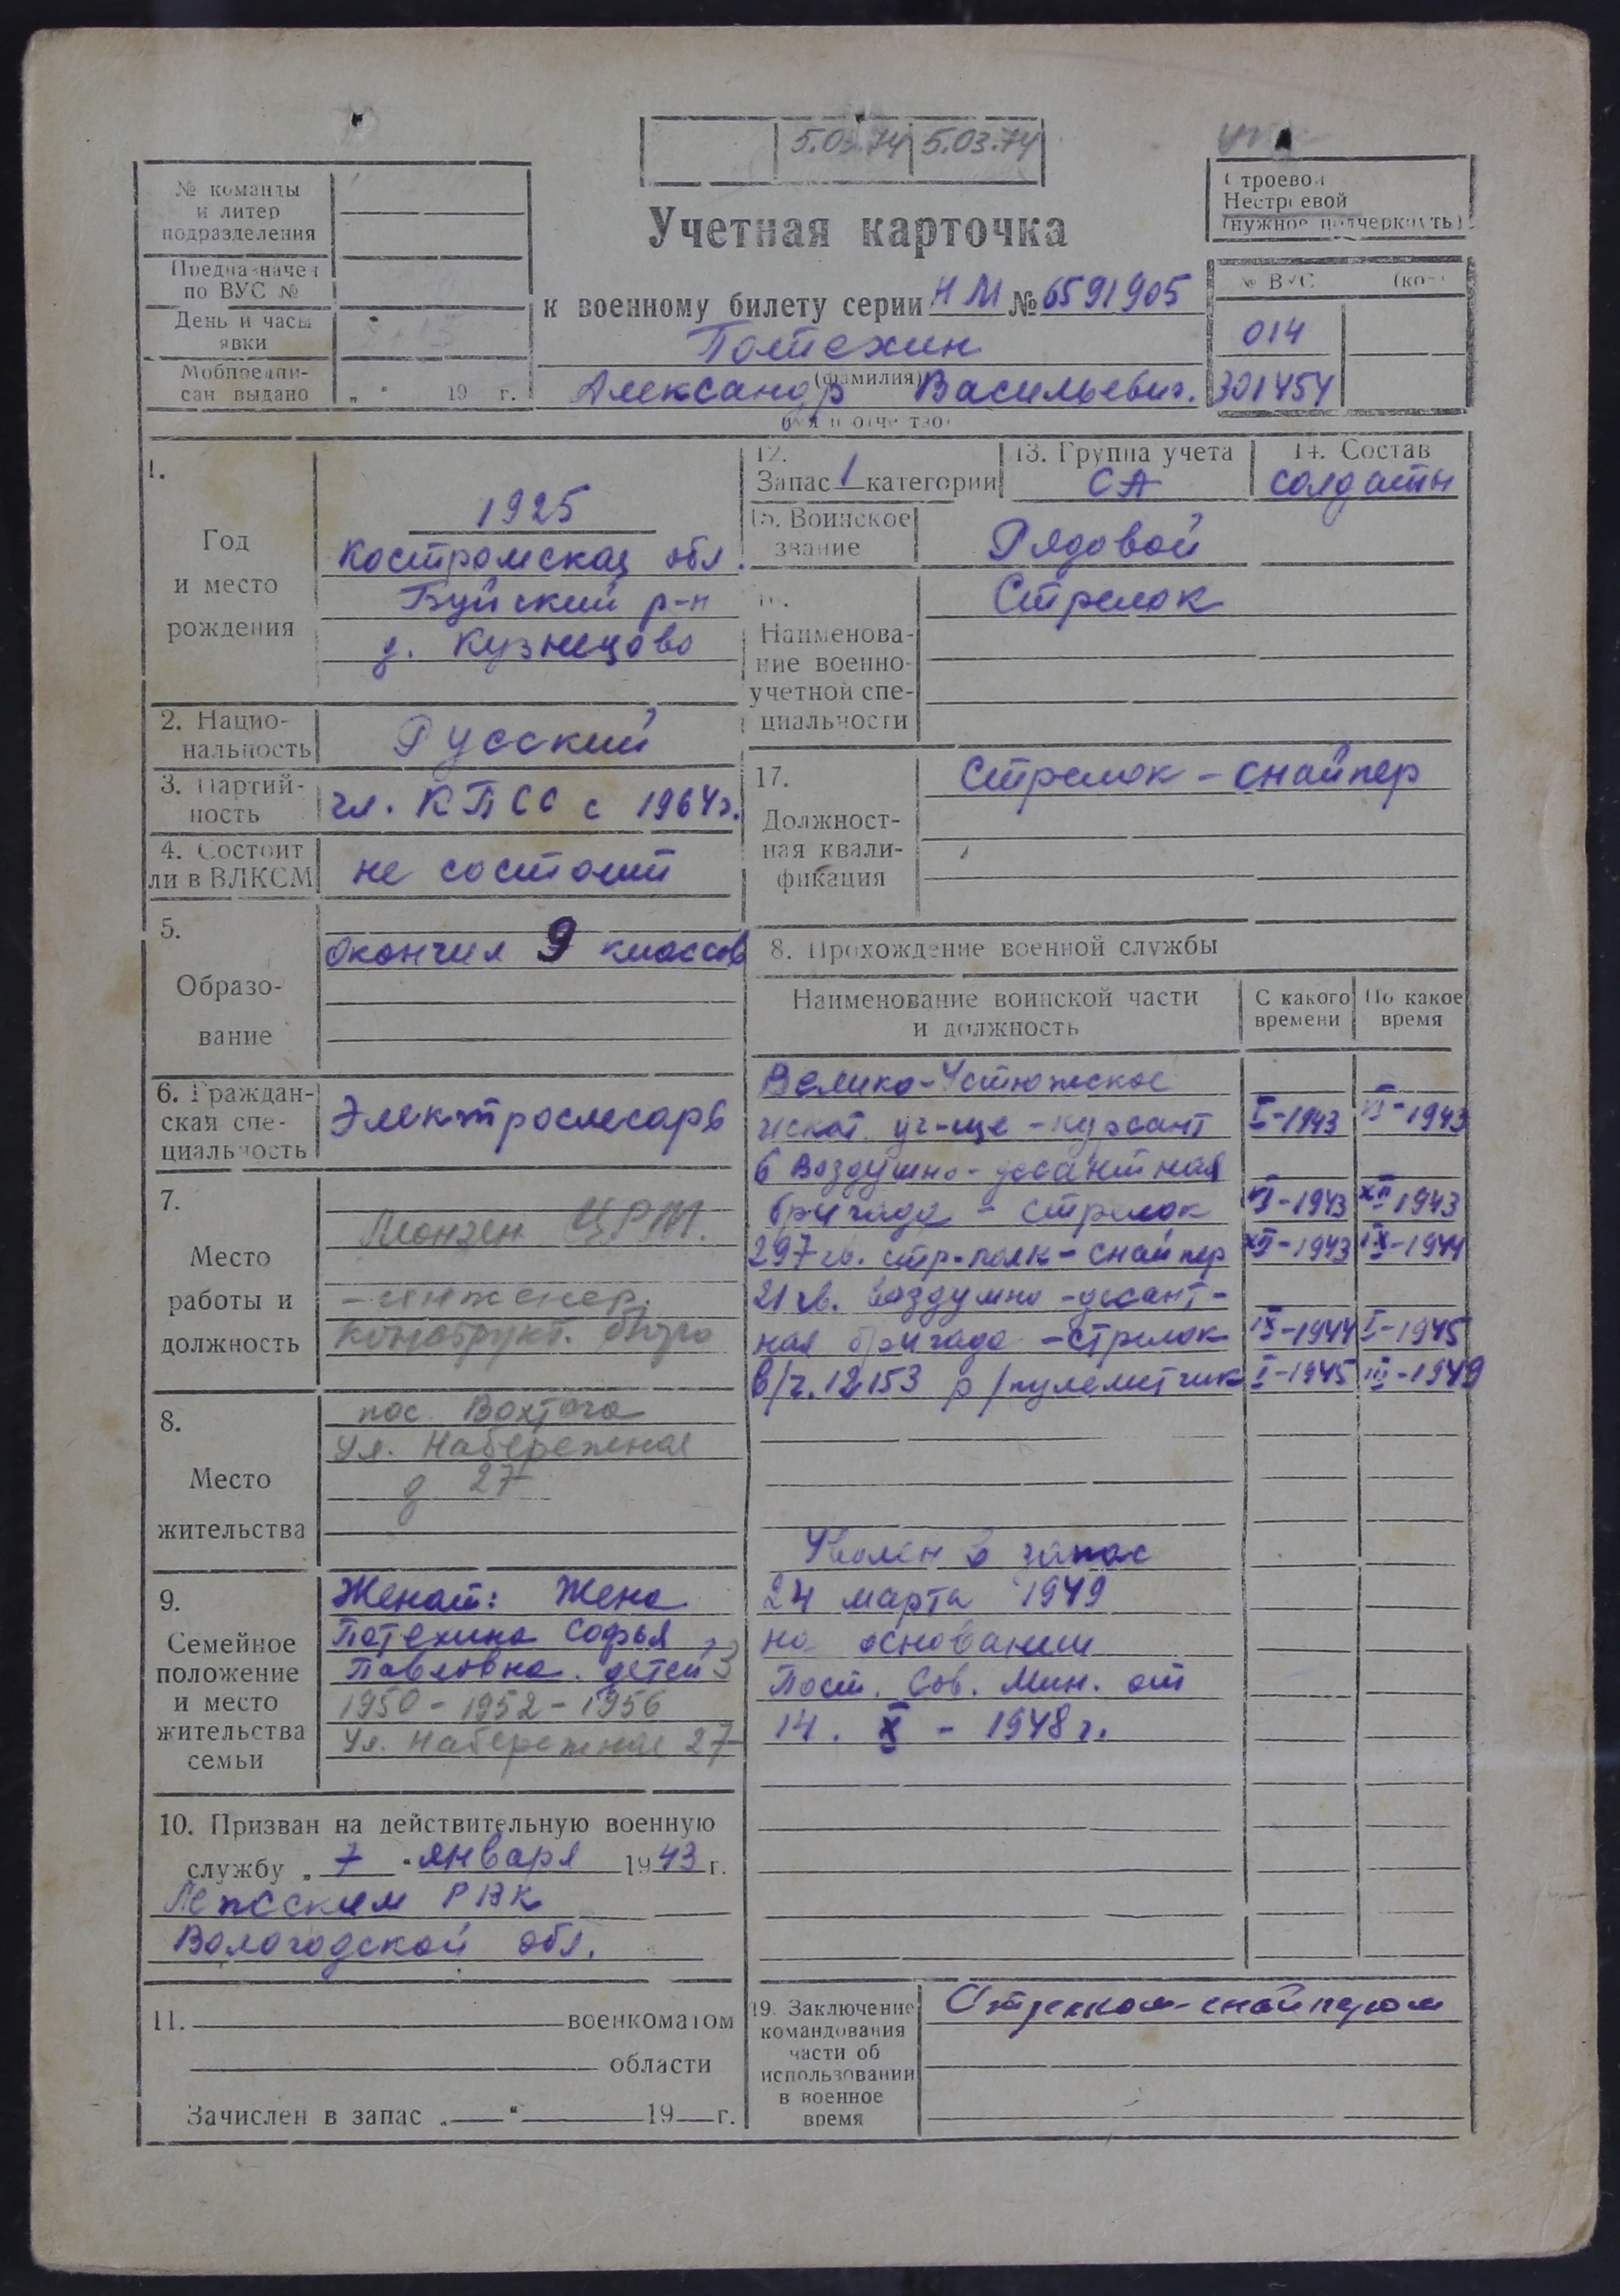 5.03.74 5.03.74
Строевой
Нестроевой
(нужное подчеркнуть)
№ команды
и литер
подразделения
Предназначен
по ВУС №
День и часы
явки
Мобпредпи-
сан выдано „ " 19 г.
Учетная карточка
к военному билету серии НМ № 6591905
Потехин
(фамилия)
Александр Васильевич.
№ ВУС
014
301454
1.
Год
и место
рождения
1925
Костромская обл.
Буйский р-н
д. Кузнецово
2. Нацио-
нальность
Русский
3. Партий-
ность
чл. КПСС с 1964г.
4. Состоит
ли в ВЛКСМ
не состоит
5.
Образо-
вание
Окончил 9 классов
6. Граждан-
ская спе-
циальность
Электрослесарь
7.
Место
работы и
должность
Монзен ЦРМ.
- инженер.
конструкт. бюро
8.
Место
жительства
пос. Вохтога
ул. Набережная
д 27
9.
Семейное
положение
и место
жительства
семьи
Женат: Жена
Потехина Софья
Павловна. детей 3
1950 - 1952 - 1956
Ул. Набережная 27
10. Призван на действительную военную
службу „ 7 " января 1943 г.
Лежским РВК
Вологодской обл.
11. военкоматом
области
Зачислен в запас „ " 19 г.
12.
Запас 1 категории
13. Группа учета
СА
14. Состав
солдаты
15. Воинское
звание
Рядовой
16.
Наименова-
ние военно-
учетной спе-
циальности
Стрелок
17.
Должност-
ная квали-
фикация
Стрелок - снайпер
8. Прохождение военной службы
Наименование воинской части
и должность
С какого
времени
По какое
время
Велико-Устюжское
пехот. уч-ще - курсант I-1943 VI-1943
6 Воздушно-десантная
бригада - стрелок VI-1943 XII 1943
297 гв. стр-полк - снайпер XII-1943 IX-1944
21 гв. воздушно-десант-
ная бригада - стрелок IX-1944 I-1945
в/ч. 12153 р/пулеметчик I-1945 III-1949
Уволен в запас
24 марта 1949
на основании
Пост. Сов. Мин. от
14. X - 1948 г.
19. Заключение
командования
части об
использовании
в военное
время
Стрелком-снайпером